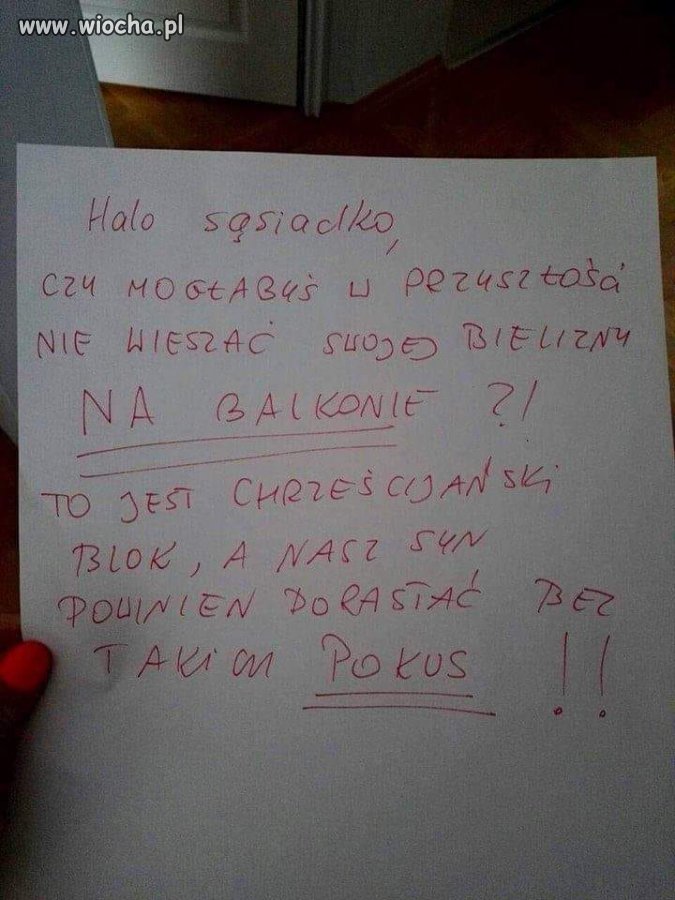 www.wiocha.pl
Halo sąsiadko,
CZY MOGŁABYŚ W PRZYSZŁOŚĆ
NIE WIESZAĆ SWOJEJ BIELIZNY
NA BALKONIE ?!
TO JEST CHRZEŚCIJAŃSKI
BLOK, A NASZ SYN
POWINIEN DORASTAĆ BEZ
TAKICH POKUS !!